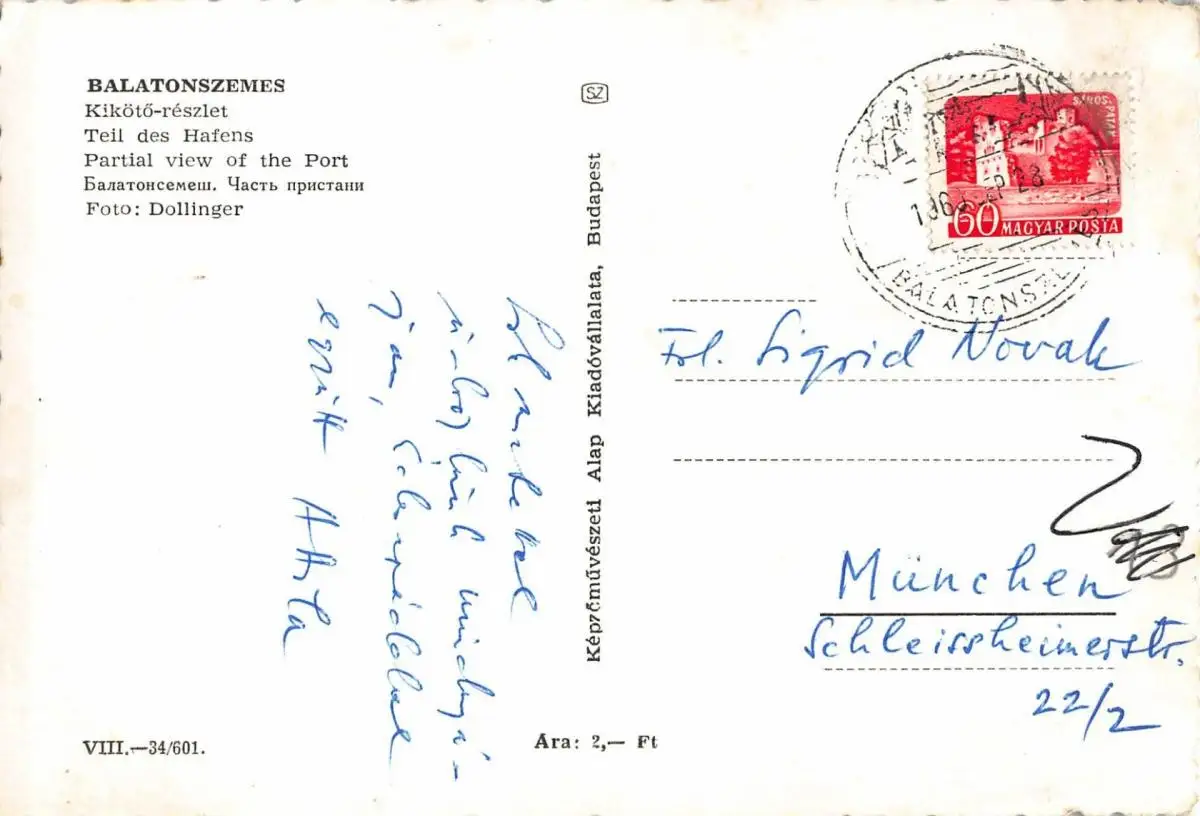 BALATONSZEMES
Kikötő-részlet
Teil des Hafens
Partial view of the Port
Балатонсемеш. Часть пристани
Foto: Dollinger
SZ
Képzőművészeti Alap Kiadóvállalata, Budapest
SÁROS-
PATAK
60 MAGYAR POSTA
BALATONSZE
Sok szeretettel
mindnyá-
jan, családdal
együtt Attila
Frl. Sigrid Novak
München
Schleissheimerstr.
22/2
VIII.—34/601.
Ára: 2,— Ft